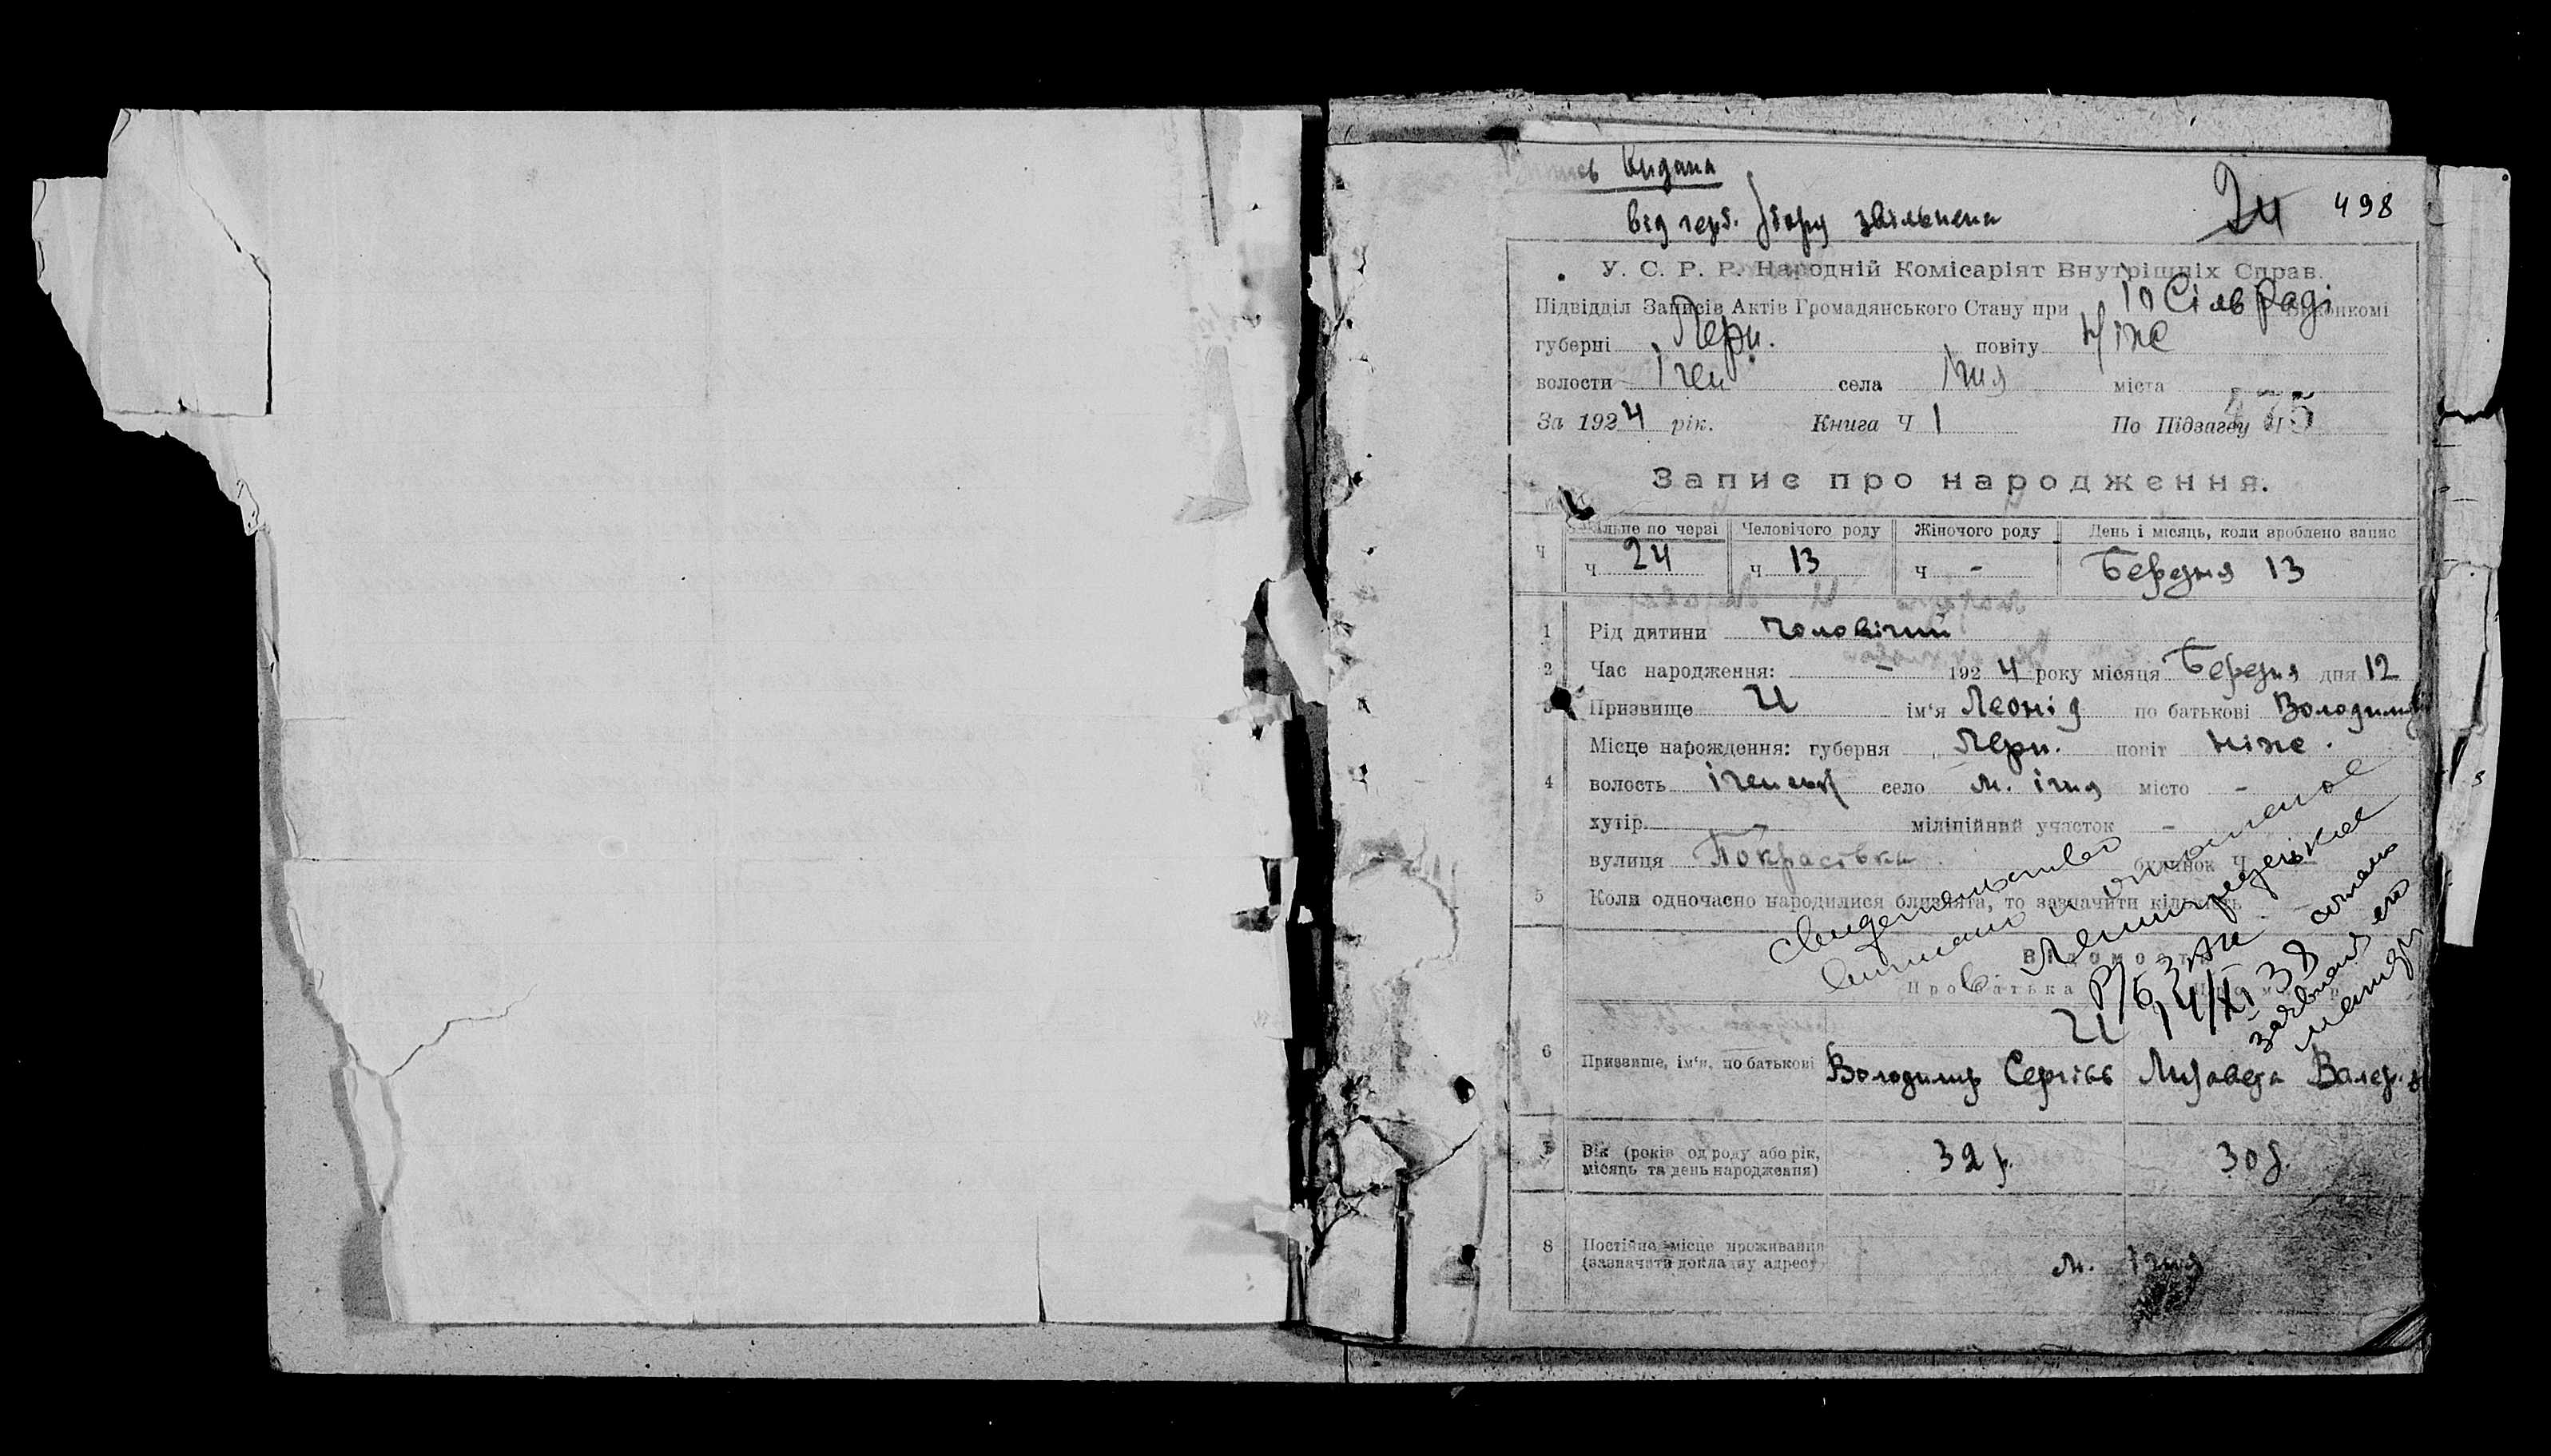 Випись видана
від герб. збору звільнена
24 498
У. С. Р. Р. Народній Комісаріят Внутрішніх Справ.
Підвідділ Записів Актів Громадянського Стану при Сільраді Виконкомі
губерні Черн. повіту Ніже
волости Ічен села Ічня міста
За 1924 рік. Книга Ч 1 По Підзагсу Ч 475
Запис про народження.
Ч Загальне по черзі Человічого роду Жіночого роду День і місяць, коли зроблено запис
Ч 24 Ч 13 Ч - Березня 13
1 Рід дитини Чоловічий
2 Час народження: - 1924 року місяця Березня дня 12
3 Призвище И ім'я Леонід по батькові Володимир
Місце народження: губерня Черн. повіт Ніже.
4 волость Іченськ село м. Ічня місто -
хутір міліційний участок -
вулиця будинок Ч
5 Коли одночасно народилися близнята, то зазначити кількість
Свидетельство
выписано и
в. Ленинградский
Р/б ЗАГС
14/XI 38
заявления его
матери
Відомості
Про батька
И
6 Призвище, ім'я, по батькові Володимир Сергієв Лизавета Валер.
7 Вік (років од роду або рік, місяць та день народження) 32 р. 30 р.
8 Постійне місце проживання (зазначити докладну адресу) м. Ічня